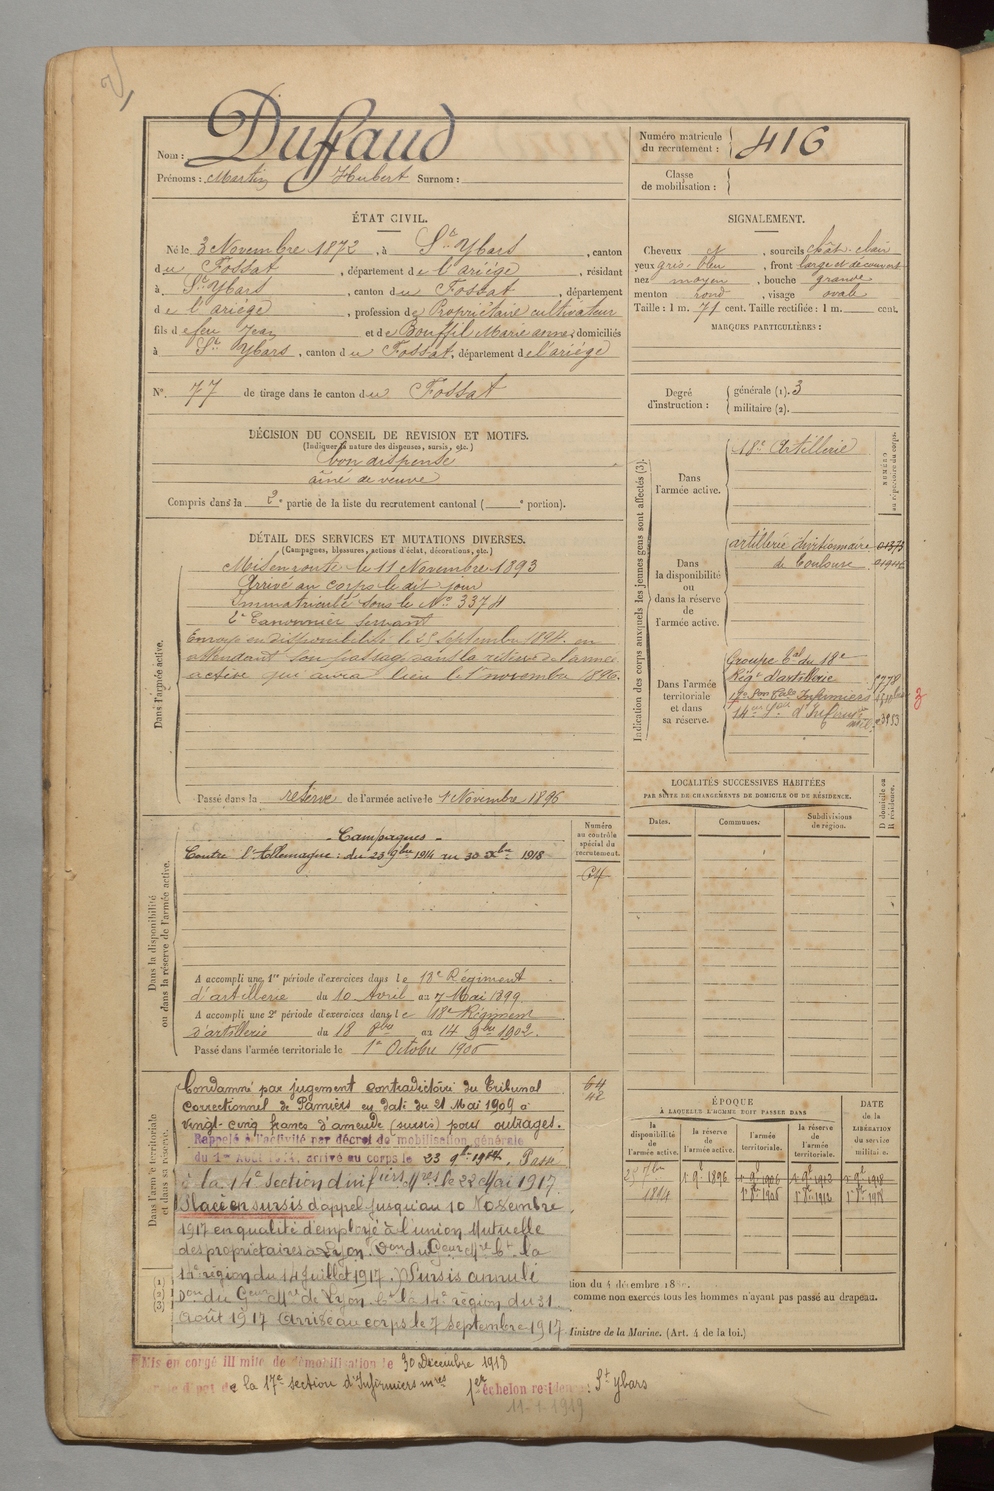 Nom : Duffaud
Prénoms : Martin Hubert Surnom :
Numéro matricule du recrutement : 416
Classe de mobilisation :
ÉTAT CIVIL.
Né le 3 Novembre 1872, à St Ybars, canton
du Fossat, département de l'ariége, résidant
à St Ybars, canton du Fossat, département
de l'ariége, profession de Propriétaire cultivateur
fils de feu Jean et de Bouffil Marie anne, domiciliés
à St Ybars, canton du Fossat, département de l'ariége
N° 77 de tirage dans le canton du Fossat
SIGNALEMENT.
Cheveux et, sourcils chât. clair
yeux gris-bleu, front large et découvert
nez moyen, bouche grande
menton rond, visage ovale
Taille : 1 m. 71 cent. Taille rectifiée : 1 m. cent.
MARQUES PARTICULIÈRES :
Degré d'instruction : générale (1). 3
militaire (2).
DÉCISION DU CONSEIL DE RÉVISION ET MOTIFS.
(Indiquer la nature des dispenses, sursis, etc.)
bon dispensé
aîné de veuve
Compris dans la 2e partie de la liste du recrutement cantonal ( e portion).
DÉTAIL DES SERVICES ET MUTATIONS DIVERSES.
(Campagnes, blessures, actions d'éclat, décorations, etc.)
Dans l'armée active.
Mis en route le 11 Novembre 1893
Arrivé au corps le dit jour
Immatriculé sous le No 3374
2e Canonnier servant
Envoyé en disponibilité le 25 Septembre 1894 en
attendant son passage dans la réserve de l'armée
active qui aura lieu le 1er novembre 1896.
Passé dans la réserve de l'armée active le 1 Novembre 1896
Indication des corps auxquels les jeunes gens sont affectés (3).
NUMÉRO au répertoire du corps.
Dans l'armée active.
18e Artillerie
Dans la disponibilité ou dans la réserve de l'armée active.
artillerie divisionnaire
de Toulouse
Dans l'armée territoriale et dans sa réserve.
Groupe tal du 18e
Régt d'artillerie
17e Son Tale Infirmiers
3
LOCALITÉS SUCCESSIVES HABITÉES
PAR SUITE DE CHANGEMENTS DE DOMICILE OU DE RÉSIDENCE.
Dates. Communes. Subdivisions de région. D domicile ou R résidence.
Dans la disponibilité ou dans la réserve de l'armée active.
Numéro au contrôle spécial du recrutement.
64
- Campagnes -
Contre l'Allemagne : du 23 9bre 1914 au 30 Xbre 1918
A accompli une 1re période d'exercices dans le 18e Régiment
d'artillerie du 10 Avril au 7 Mai 1899.
A accompli une 2e période d'exercices dans le 18e Régiment
d'artillerie du 18 8bre au 14 9bre 1902.
Passé dans l'armée territoriale le 1er Octobre 1906
Dans l'armée territoriale et dans sa réserve.
Condamné par jugement contradictoire du Tribunal
Correctionnel de Pamiers en date du 21 Mai 1909 à
vingt-cinq francs d'amende (sursis) pour outrages.
Rappelé à l'activité par décret de mobilisation générale
du 1er Août 1914, arrivé au corps le 23 9bre 1914. Passé
à la 14e section d'infiers Mres le 22 Mai 1917
Placé en sursis d'appel jusqu'au 10 Novembre
1917 en qualité d'employé à l'union Mutuelle
des propriétaires à Lyon. Don du Gneur Mre Ct la
14e région du 14 Juillet 1917. Sursis annulé
Don du Geur Mre de Lyon Ct la 14e région du 31
Août 1917 Arrivé au corps le 7 septembre 1917
ÉPOQUE
À LAQUELLE L'HOMME DOIT PASSER DANS
la disponibilité de l'armée active. la réserve de l'armée active. l'armée territoriale. la réserve de l'armée territoriale.
DATE de la LIBÉRATION du service militaire.
tion du 4 décembre 18
comme non exercés tous les hommes n'ayant pas passé au drapeau.
Ministre de la Marine. (Art. 4 de la loi.)
Mis en congé illimité de démobilisation le 30 Décembre 1918
de la 17e section d'Infirmiers mres 1er échelon résidence : St Ybars
11-1-1919